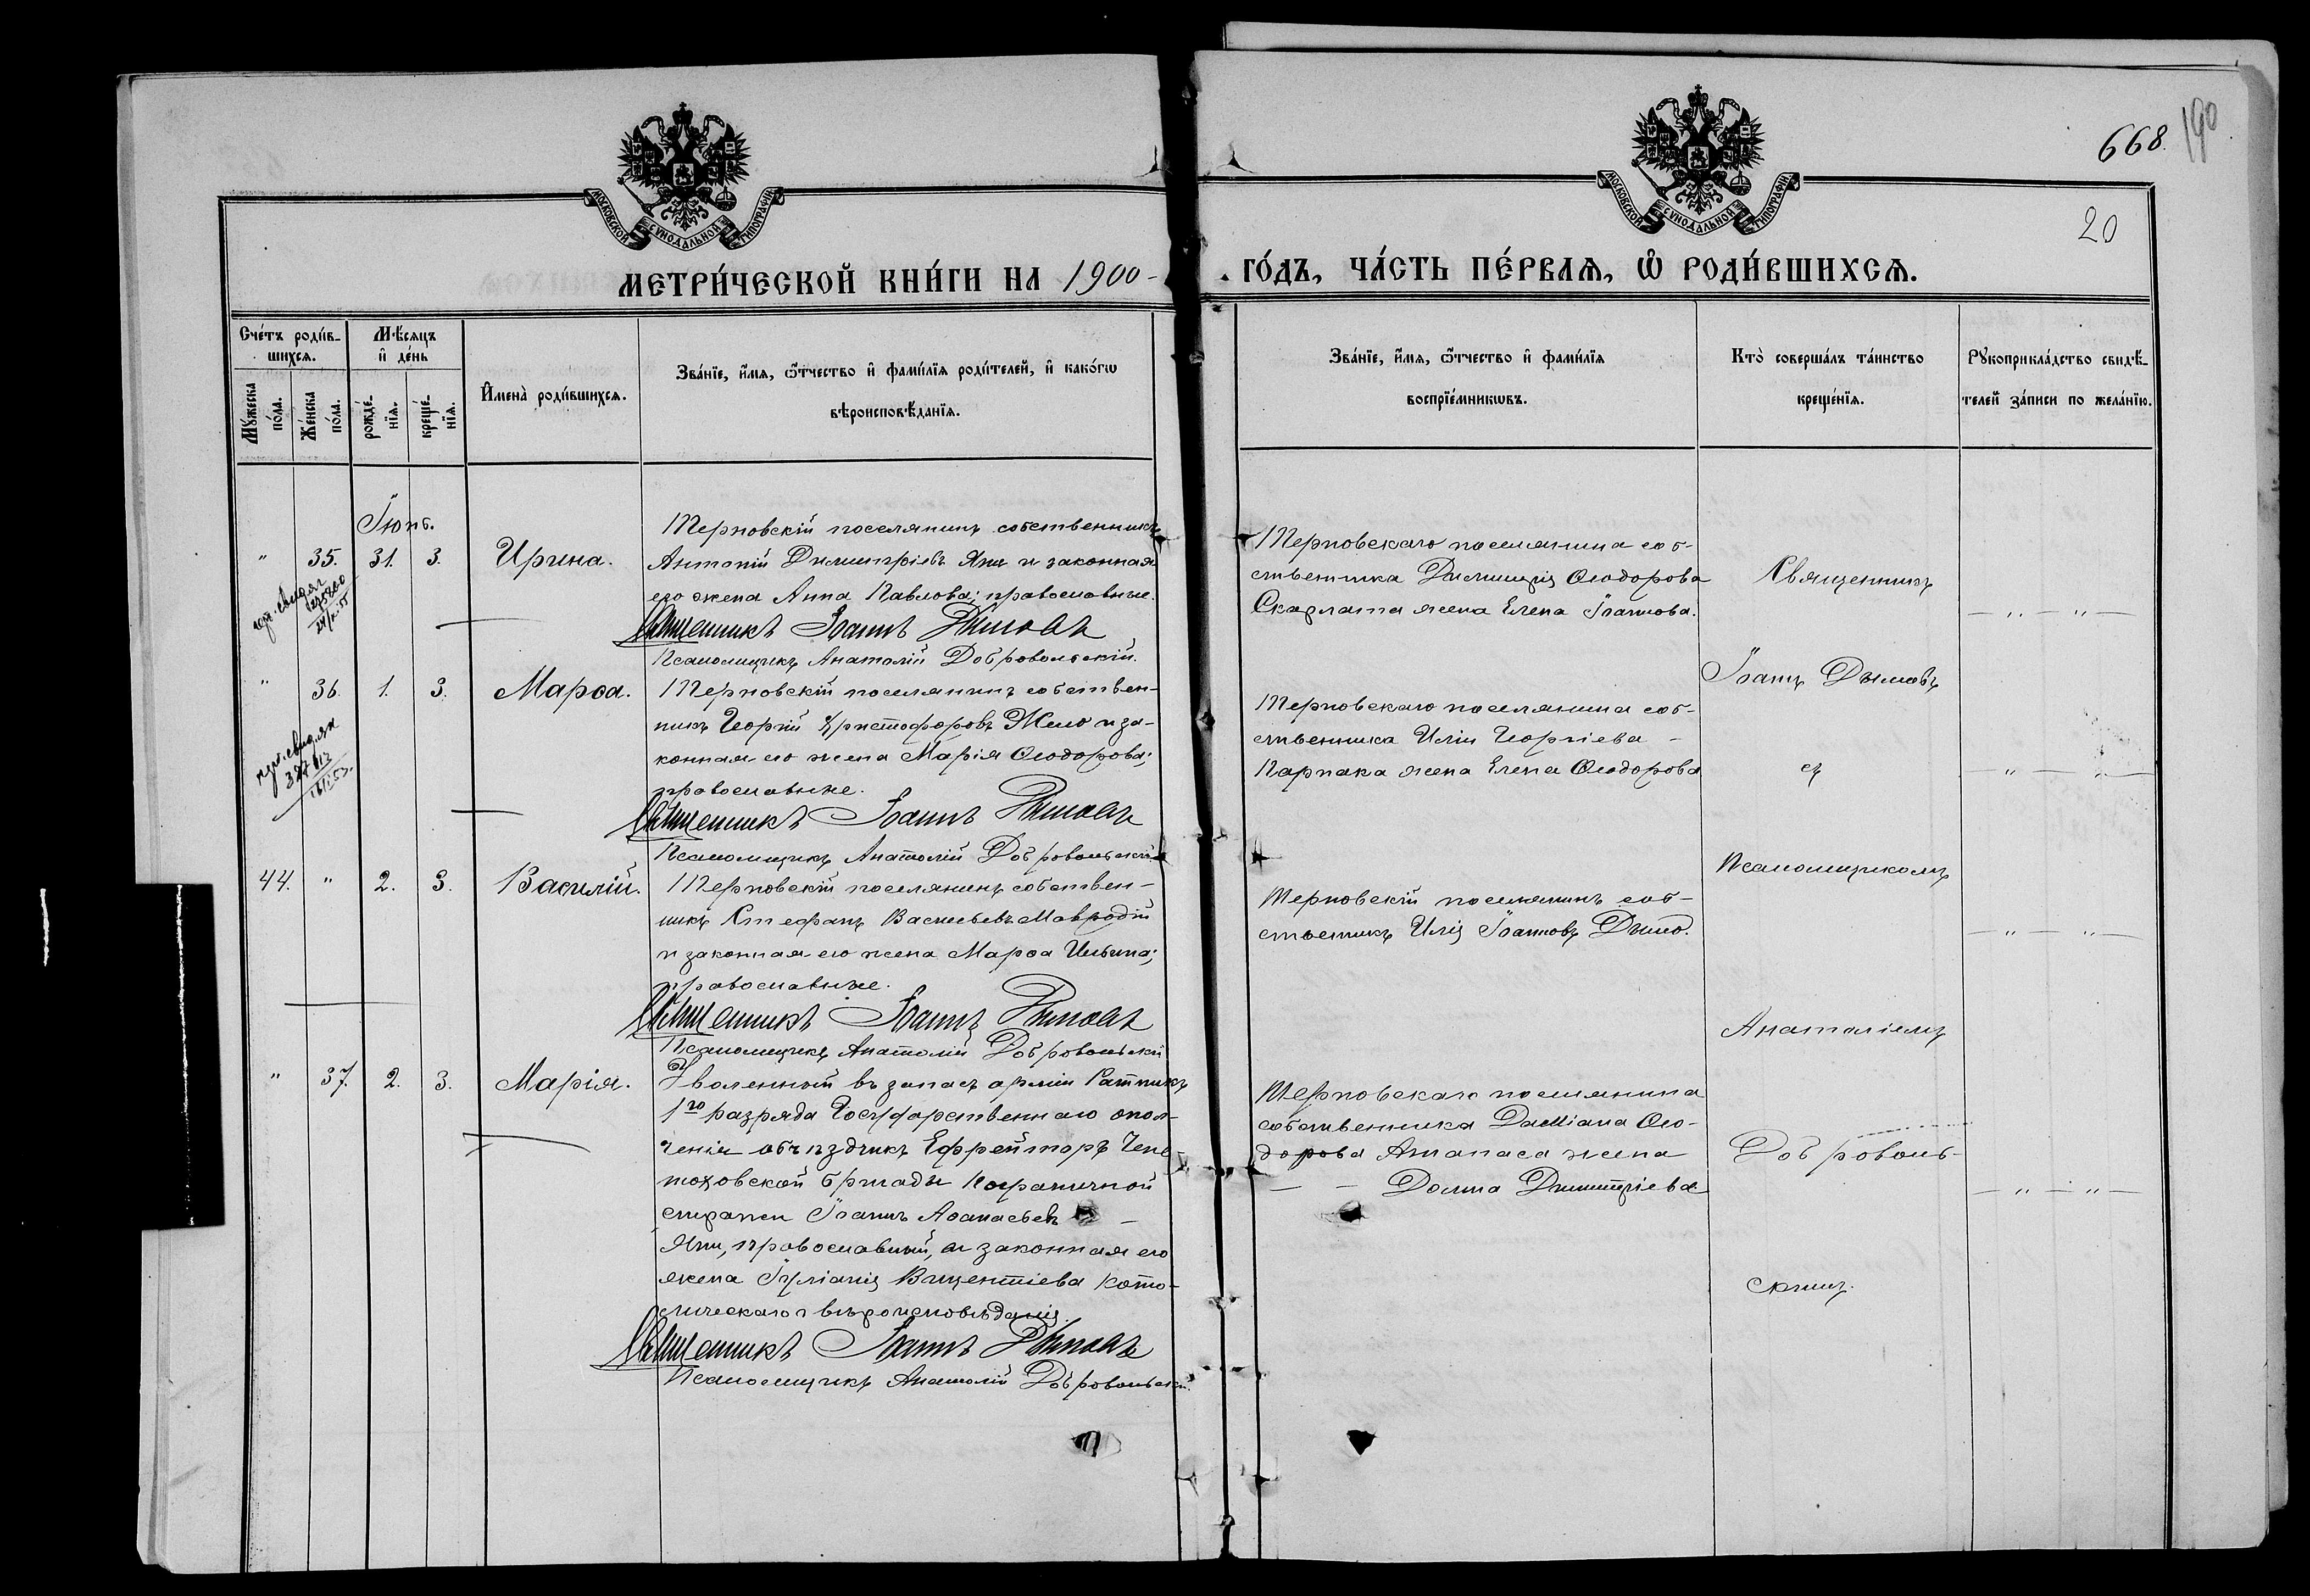 668.
190
20
МОСКОВСКОЙ СѴНОДАЛЬНОЙ ТИПОГРАФІИ
МОСКОВСКОЙ СѴНОДАЛЬНОЙ ТИПОГРАФІИ
МЕТРИ́ЧЕСКОЙ КНИ́ГИ НА 1900 - ГО́ДЪ, ЧА́СТЬ ПЕ́РВАѦ, Ѽ РОДИ́ВШИХСѦ.
Сче́тъ роди́в-
шихсѧ.
Мꙋжеска по́ла.
Же́нска по́ла.
Мѣ́сѧцъ
и҆ де́нь
рожде́-нїѧ.
креще́-нїѧ.
И҆мена̀ роди́вшихсѧ.
Зва́нїе, и҆́мѧ, ѻ҆́тчество и҆ фами́лїѧ роди́телей, и҆ како́гѡ
вѣроисповѣ́данїѧ.
Зва́нїе, и҆́мѧ, ѻ҆́тчество и҆ фами́лїѧ
воспрїе́мникѡвъ.
Кто̀ соверша́лъ та́инство
креще́нїѧ.
Рꙋкоприкла́дство свидѣ́-
телей за́писи по жела́нїю.
Іюнь.
" 35. 31. 3. Ирина.
Терновскій поселянинъ собственникъ
Антоній Димитріевъ Яни и законная
его жена Анна Павлова; православные.
Священникъ Іоаннъ Дымовъ
Псаломщикъ Анатолій Добровольскій.
Терновскаго поселянина соб-
ственника Димитрія Ѳеодорова
Скарлата жена Елена Іоаннова.
Священникъ
— " — " —
" 36. 1. 3. Марѳа.
Терновскій поселянинъ собствен-
никъ Георгій Христофоровъ Жело и за-
конная его жена Марія Ѳеодорова;
православные.
Священникъ Іоаннъ Дымовъ
Псаломщикъ Анатолій Добровольскій
Терновскаго поселянина соб-
ственника Иліи Георгіева -
Карпака жена Елена Ѳеодорова
Іоаннъ Дымовъ
съ
— " — " —
44. " 2. 3. Василій.
Терновскій поселянинъ собствен-
никъ Стефанъ Васильевъ Мавродій
и законная его жена Марѳа Ильина;
православные.
Священникъ Іоаннъ Дымовъ
Псаломщикъ Анатолій Добровольскій
Терновскій поселянинъ соб-
ственникъ Илія Іоанновъ
Псаломщикомъ
— " — " —
" 37. 2. 3. Марія.
Уволенный въ запасъ арміи Ратникъ
1го разряда Государственнаго опол-
ченія объѣздчикъ Ефрейторъ Чен-
стоховской бригады Пограничной
стражи Іоаннъ Аѳанасьевъ —
Яни, православный, и законная его
жена Іуліанія Викентіева като-
лическаго вѣроисповѣданія.
Священникъ Іоаннъ Дымовъ
Псаломщикъ Анатолій Добровольскій.
Терновскаго поселянина
собственника Даміана Ѳео-
дорова Атанаса жена
— — Домна Димитріева
Анатоліемъ
Доброволь-
скимъ.
— " — " —